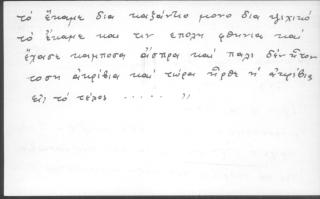 τό ἔκαμε δια καζάντιο μονο δια ψιχικό
τό ἔκαμε και την επολη φθηνια καί
ἔχασε καμποσα ἄσπρα καί παλι δέν ἦτον
τοση ἀκρίβια καί τώρα ἦρθε ἡ ἀκρίβια
εἰς τό τέλος ..... "